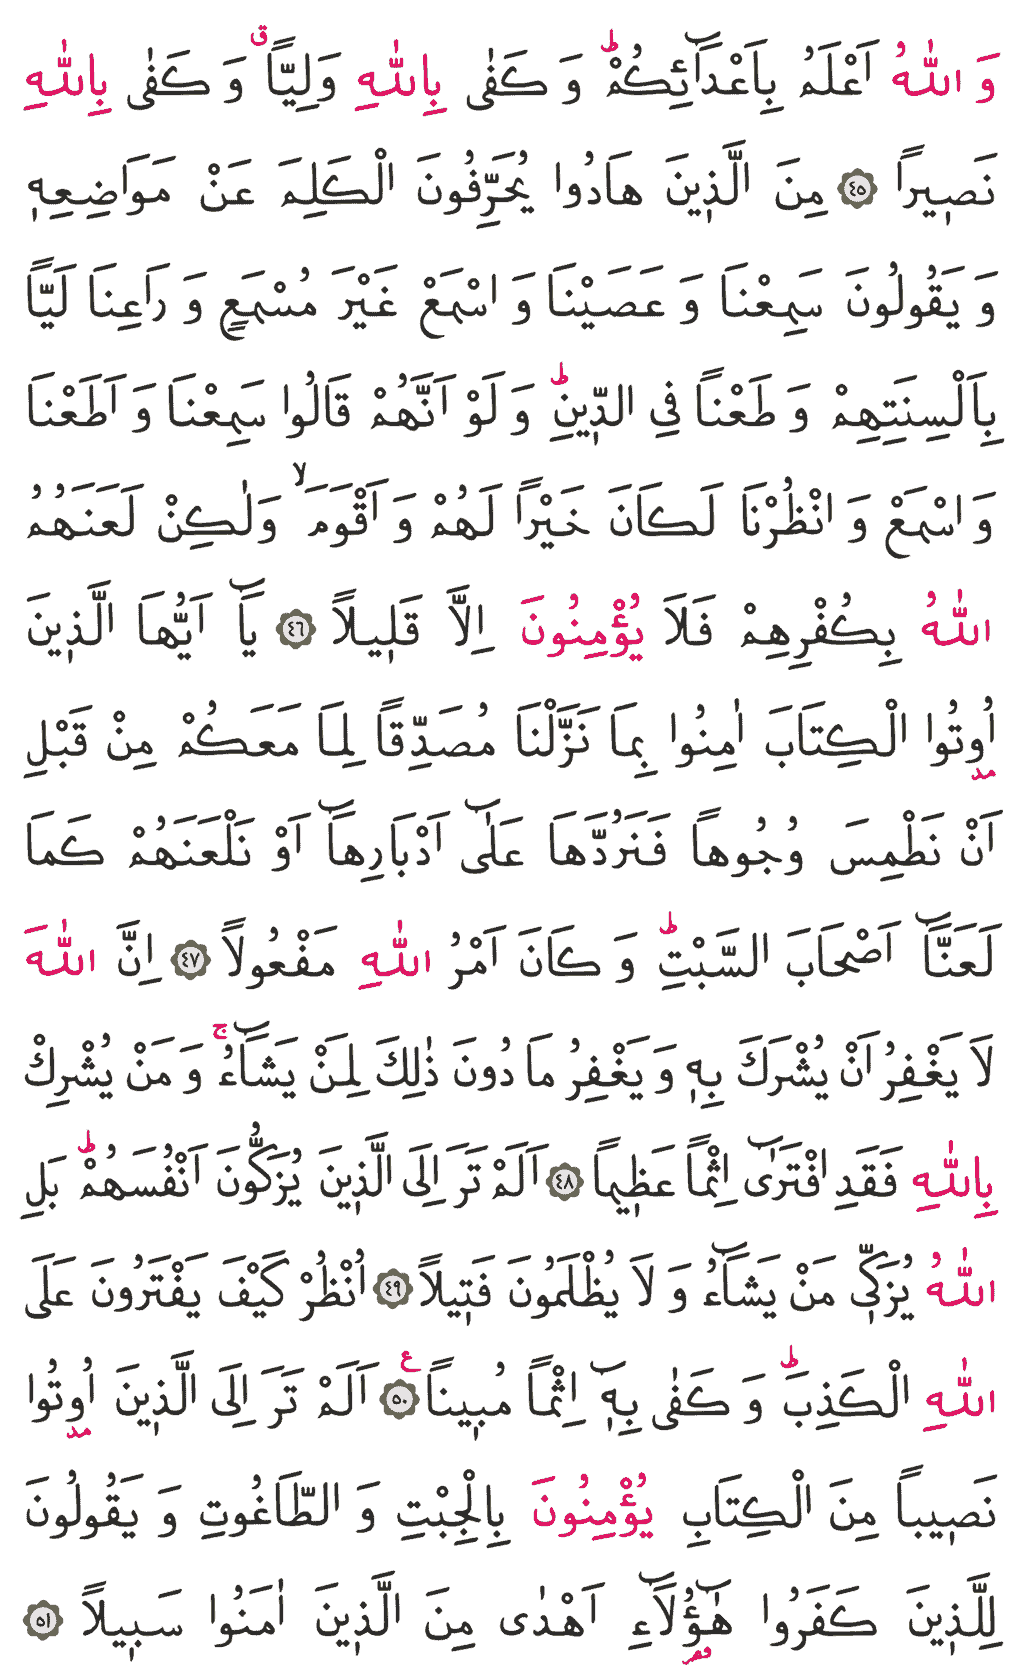 وَ اللّٰهُ اَعْلَمُ بِاَعْدَٓائِكُمْۜ وَ كَفٰى بِاللّٰهِ وَلِيًّاࣗ وَ كَفٰى بِاللّٰهِ
نَص۪يراً ﴿٤٥﴾ مِنَ الَّذ۪ينَ هَادُوا يُحَرِّفُونَ الْكَلِمَ عَنْ مَوَاضِعِه۪
وَ يَقُولُونَ سَمِعْنَا وَ عَصَيْنَا وَ اسْمَعْ غَيْرَ مُسْمَعٍ وَ رَاعِنَا لَيًّا
بِاَلْسِنَتِهِمْ وَ طَعْناً فِي الدّ۪ينِۜ وَ لَوْ اَنَّهُمْ قَالُوا سَمِعْنَا وَ اَطَعْنَا
وَ اسْمَعْ وَ انْظُرْنَا لَكَانَ خَيْراً لَهُمْ وَ اَقْوَمَۙ وَلٰكِنْ لَعَنَهُمُ
اللّٰهُ بِكُفْرِهِمْ فَلَا يُؤْمِنُونَ اِلَّا قَل۪يلاً ﴿٤٦﴾ يَٓا اَيُّهَا الَّذ۪ينَ
اُو۫تُوا الْكِتَابَ اٰمِنُوا بِمَا نَزَّلْنَا مُصَدِّقاً لِمَا مَعَكُمْ مِنْ قَبْلِ
اَنْ نَطْمِسَ وُجُوهاً فَنَرُدَّهَا عَلٰٓى اَدْبَارِهَٓا اَوْ نَلْعَنَهُمْ كَمَا
لَعَنَّٓا اَصْحَابَ السَّبْتِۜ وَ كَانَ اَمْرُ اللّٰهِ مَفْعُولاً ﴿٤٧﴾ اِنَّ اللّٰهَ
لَا يَغْفِرُ اَنْ يُشْرَكَ بِه۪ وَ يَغْفِرُ مَا دُونَ ذٰلِكَ لِمَنْ يَشَٓاءُۚ وَ مَنْ يُشْرِكْ
بِاللّٰهِ فَقَدِ افْتَرٰٓى اِثْماً عَظ۪يماً ﴿٤٨﴾ اَلَمْ تَرَ اِلَى الَّذ۪ينَ يُزَكُّونَ اَنْفُسَهُمْۜ بَلِ
اللّٰهُ يُزَكّ۪ي مَنْ يَشَٓاءُ وَ لَا يُظْلَمُونَ فَت۪يلاً ﴿٤٩﴾ اُنْظُرْ كَيْفَ يَفْتَرُونَ عَلَى
اللّٰهِ الْكَذِبَۜ وَ كَفٰى بِه۪ٓ اِثْماً مُب۪يناً ﴿٥٠﴾ ع اَلَمْ تَرَ اِلَى الَّذ۪ينَ اُو۫تُوا
نَص۪يباً مِنَ الْكِتَابِ يُؤْمِنُونَ بِالْجِبْتِ وَ الطَّاغُوتِ وَ يَقُولُونَ
لِلَّذ۪ينَ كَفَرُوا هٰٓؤُ۬لَٓاءِ اَهْدٰى مِنَ الَّذ۪ينَ اٰمَنُوا سَب۪يلاً ﴿٥١﴾